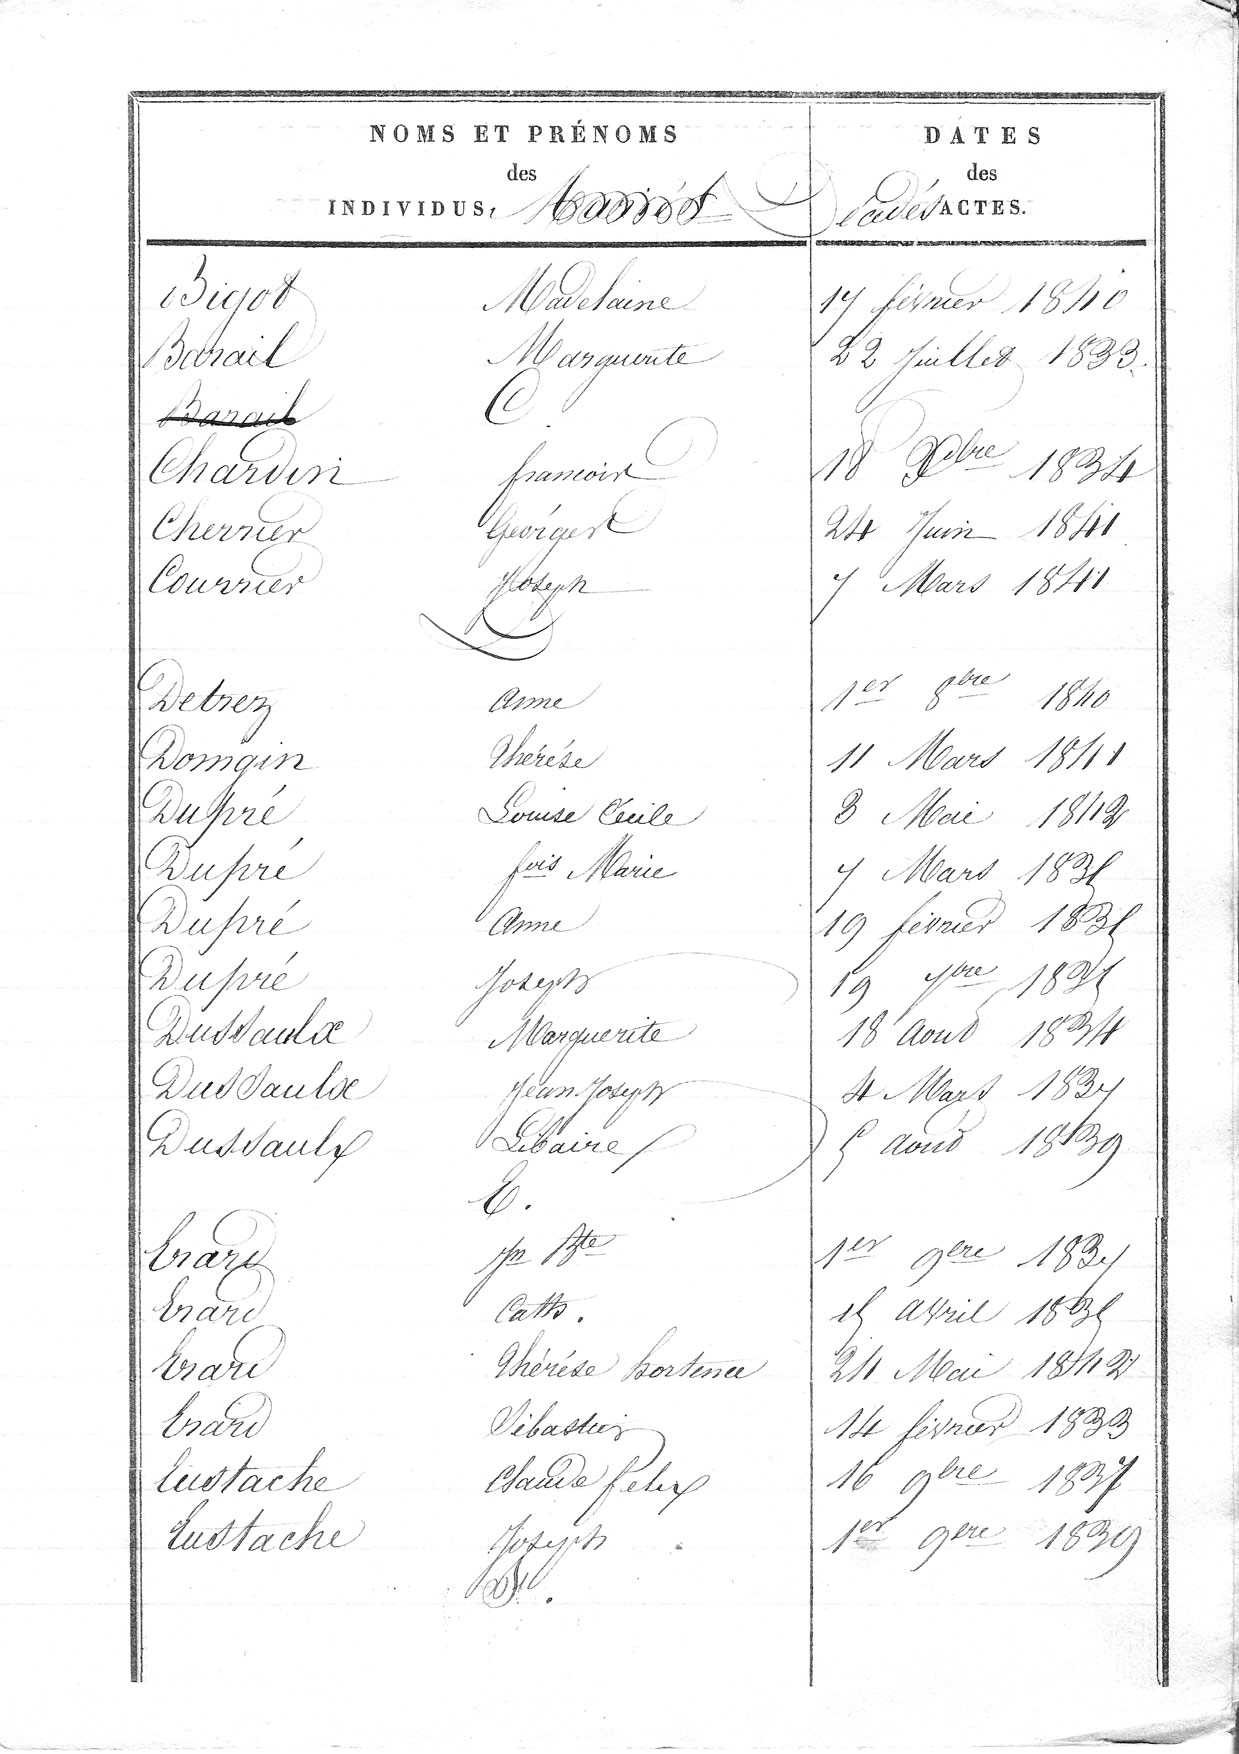 NOMS ET PRÉNOMS DATES
des des
INDIVIDUS, Mariés Décédés ACTES.
Bigot Madelaine 17 février 1840
Barail Marguerite 22 Juillet 1833.
Barail C.
Chardin francois 18 Xbre 1834
Chervier Georges 24 Juin 1841
Courrier Joseph 7 Mars 1841
D
Detrez Anne 1er 8bre 1840
Domgin Thérése 11 Mars 1841
Dupré Louise Cécile 3 Mai 1842
Dupré fois Marie 7 Mars 1835
Dupré Anne 19 février 1835
Dupré Joseph 19 7bre 1835
Dussaulx Marguerite 18 Aout 1834
Dussaulx Jean Joseph 4 Mars 1837
Dussaulx Libaire 5 Aout 1839
E.
Erard Jn Bte 1er 9bre 1837
Erard Cath. 15 Avril 1835
Erard Thérése hortence 24 Mai 1842
Erard Sébastien 14 février 1833
Eustache Claude felix 16 9bre 1837
Eustache Joseph 1er 9bre 1839
F.